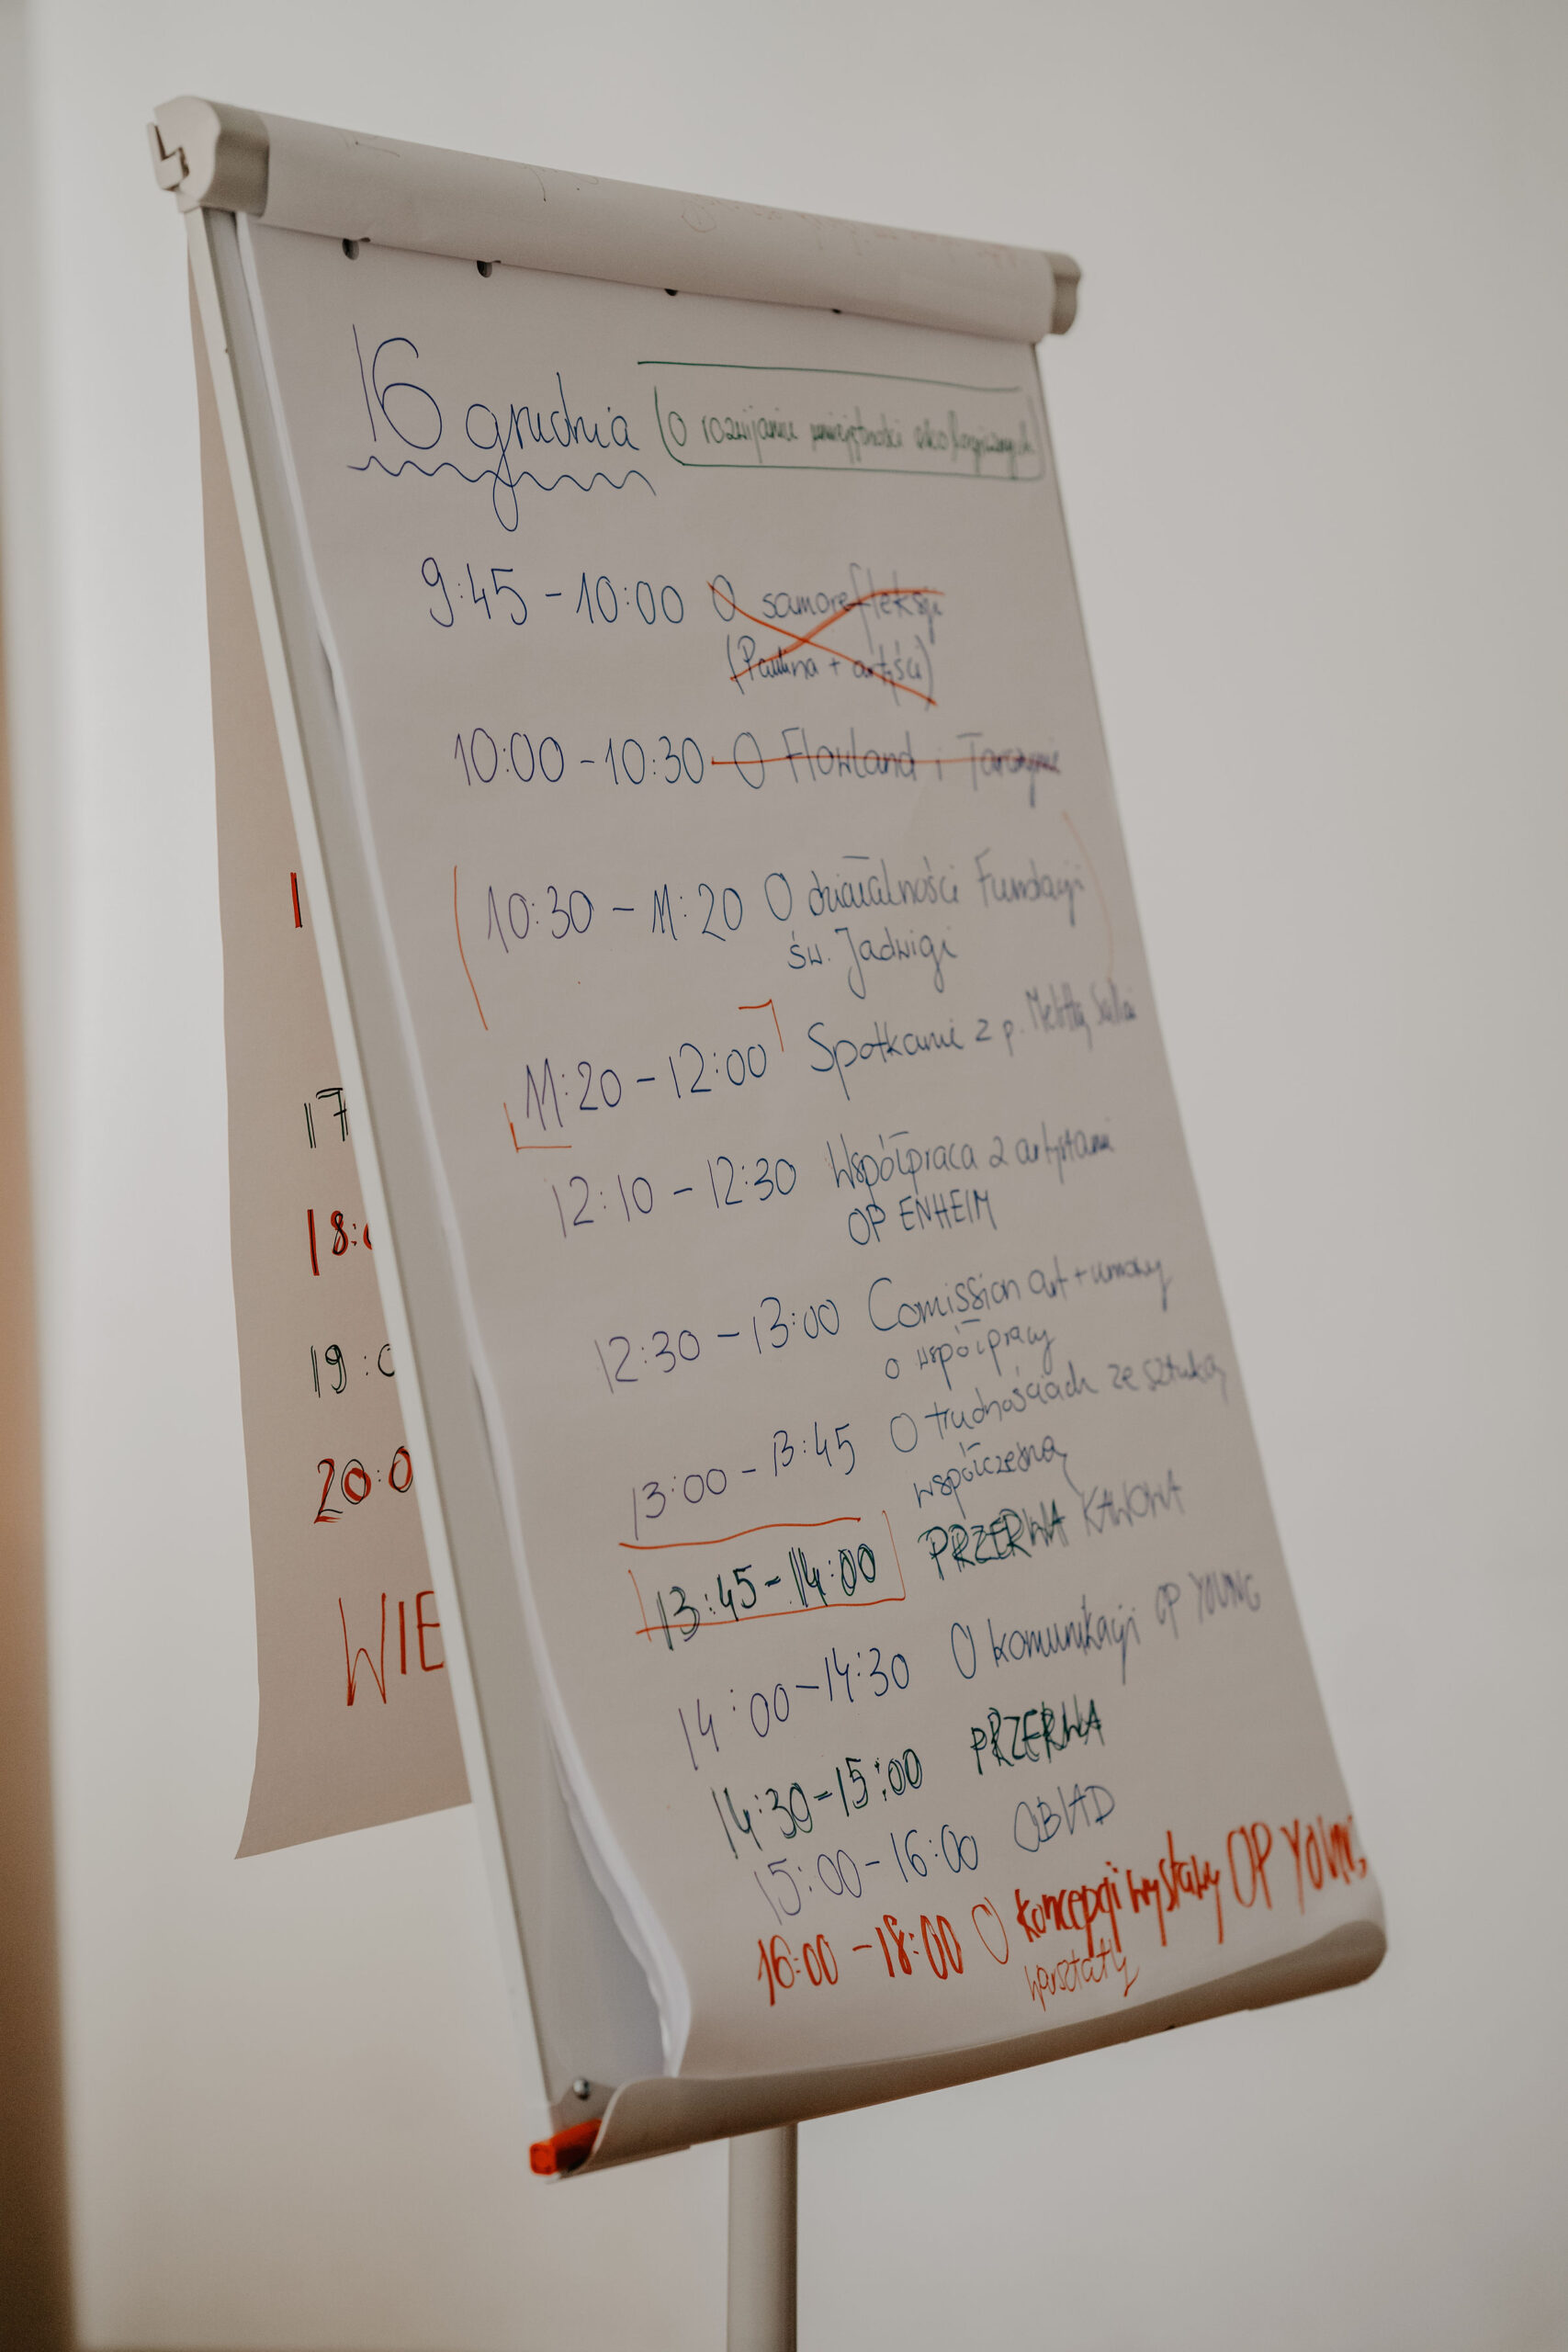 16 grudnia
O rozwijaniu umiejętności ekologicznych
9:45 - 10:00 O samorefleksji
(Paulina + artyści)
10:00 - 10:30 O Flowland i Tarczynie
10:30 - 11:20 O działalności Fundacji
św. Jadwigi
11:20 - 12:00 Spotkanie z p.
12:10 - 12:30 Współpraca z artystami
OP ENHEIM
12:30 - 13:00 Comission art + umowy
o współpracy
13:00 - 13:45 O trudnościach ze sztuką
współczesną
13:45 - 14:00 PRZERWA KAWOWA
14:00 - 14:30 O komunikacji OP YOUNG
14:30 - 15:00 PRZERWA
15:00 - 16:00 OBIAD
16:00 - 18:00 O koncepcji wystawy OP YOUNG
warsztaty
1
17
18:0
19:0
20:0
WIE